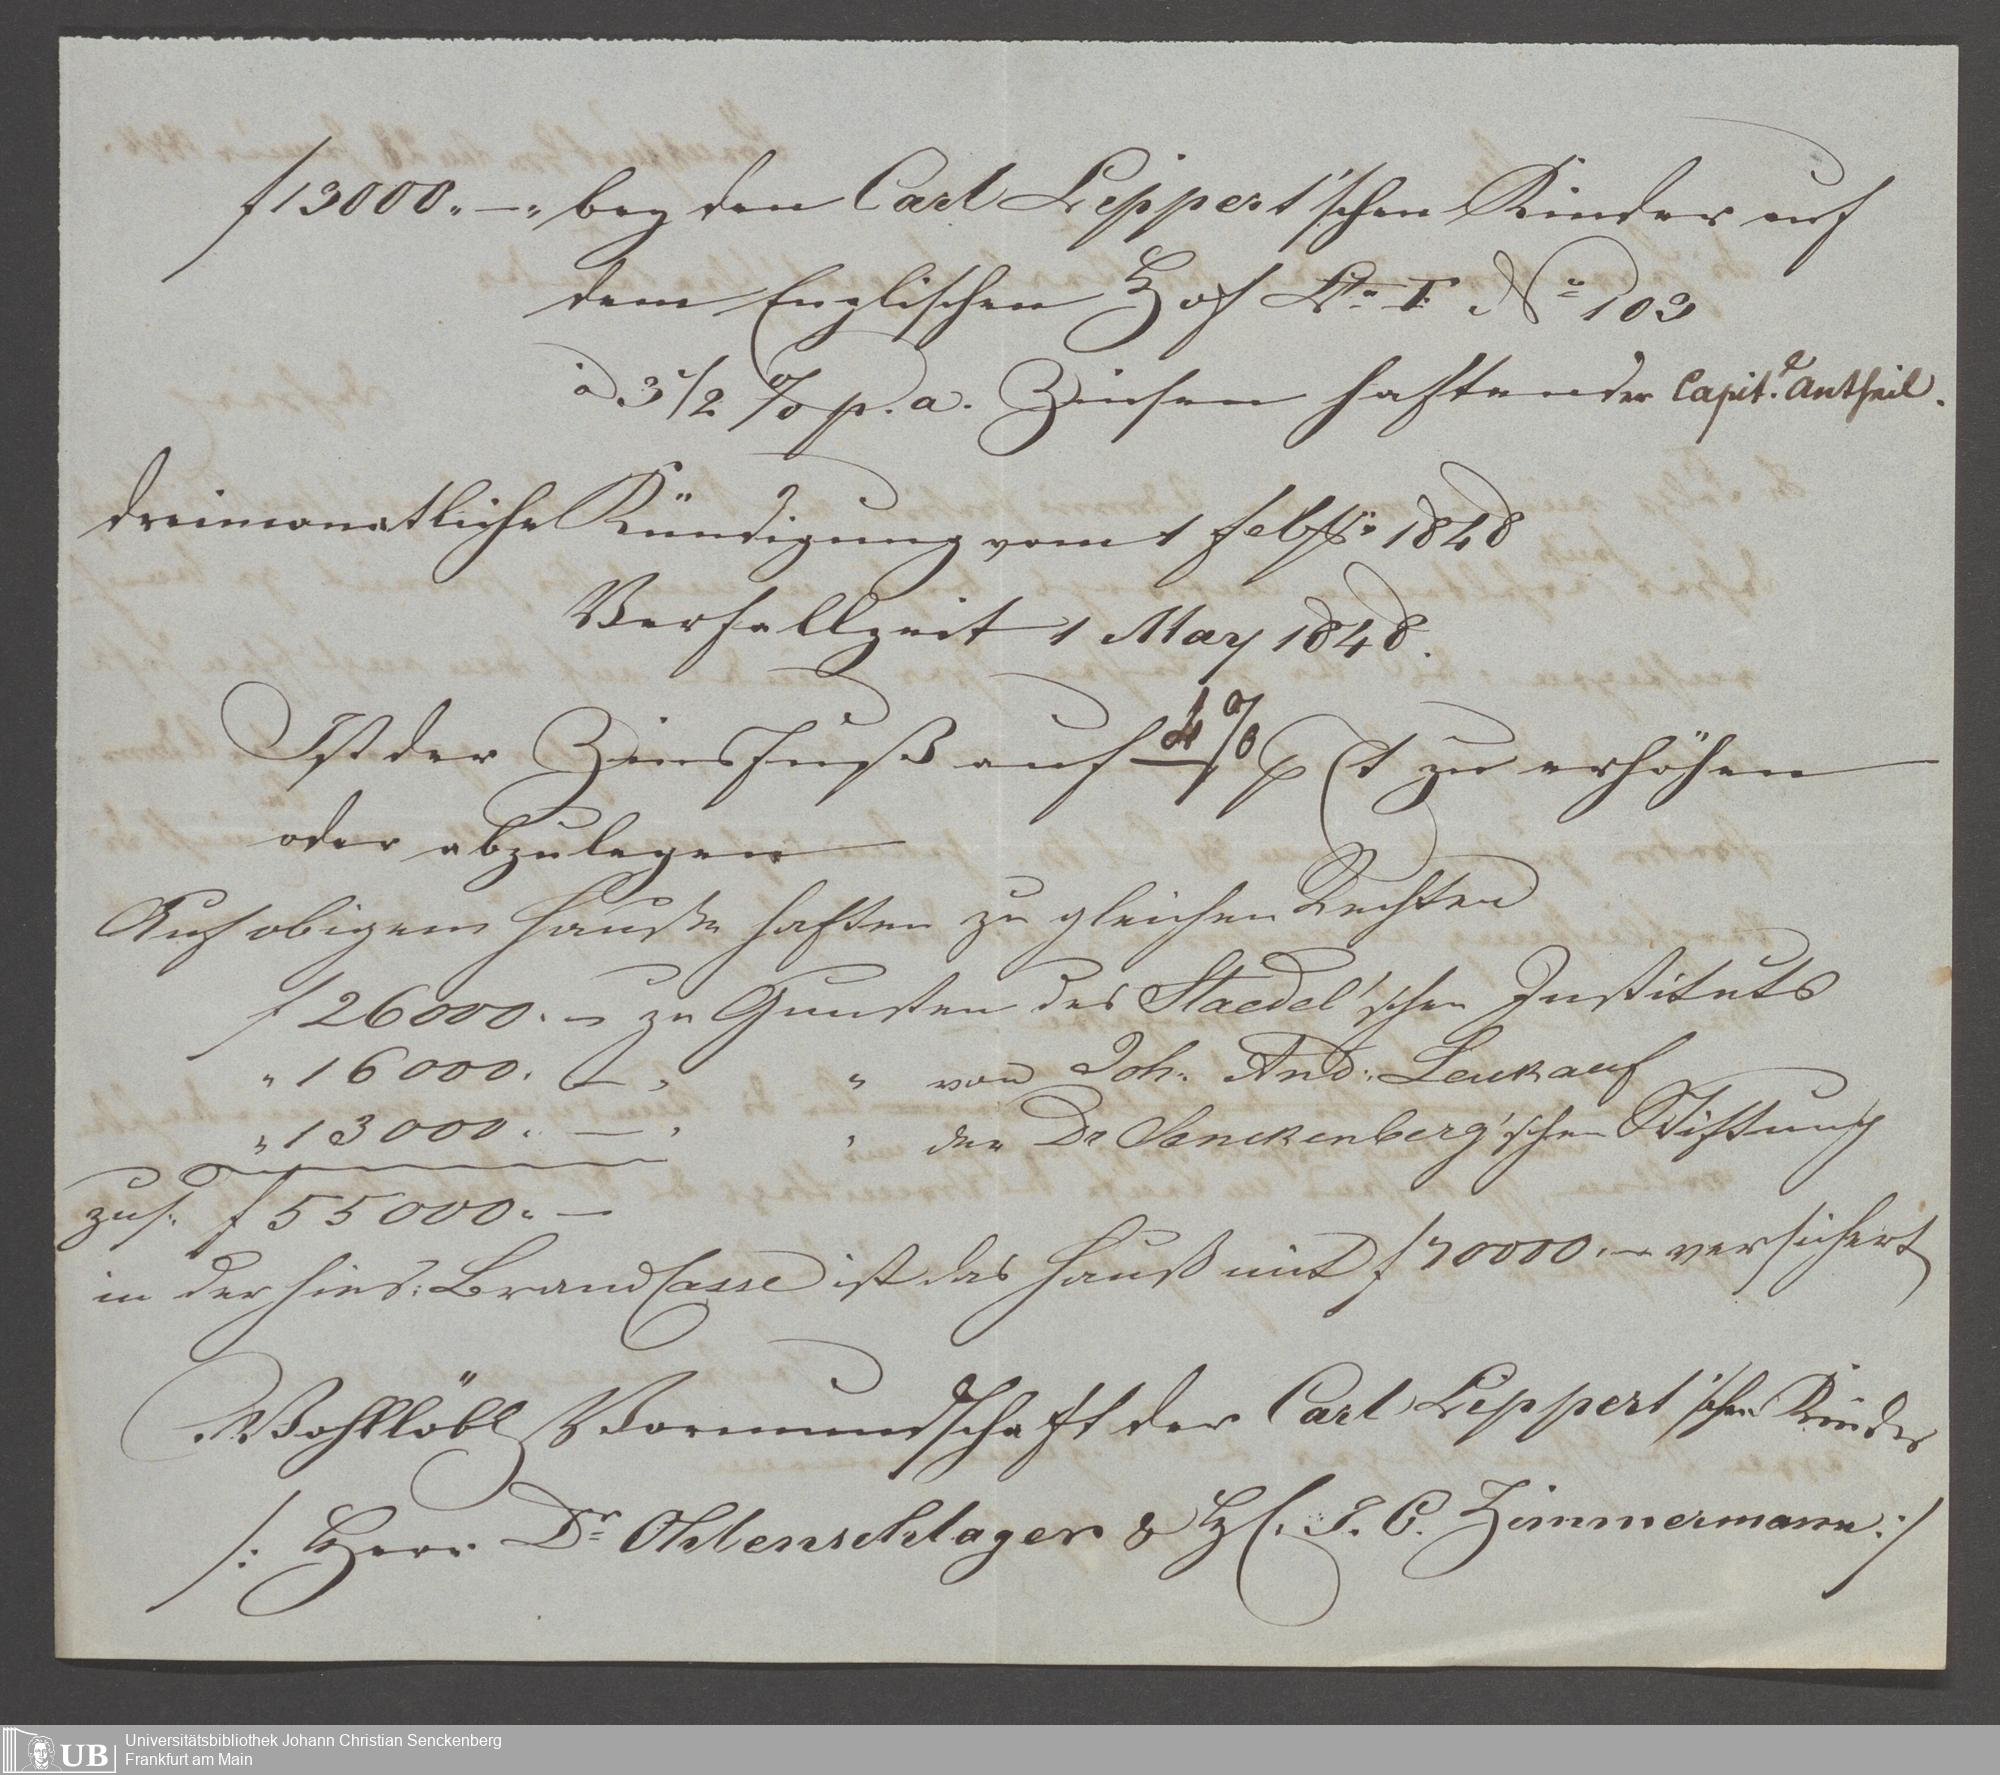 f 13000.-. bey den Carl Lippert'schen Kinder auf
dem Englischen Hof Lta. I No 103
à 3 1/2 % p. a. Zinsen haftender Capit. Antheil.
dreimonatliche Kündigung vom 1 Febr. 1848
Verfallzeit 1 May 1848.
Ist der Zinsfuß auf 4 % p Ct zu erhöhen
oder abzulegen
Auf obigem Hauße haften zu gleichen Rechten
f 26000.- zu Gunsten des Staedel'schen Instituts
" 16000.- " " von Joh. And: Leukauf
" 13000.- " " der Dr Senckenberg'schen Stiftung
zus. f 55000.-
in der hies: BrandCasse ist das Hauß mit f 70000.- versichert
Wohllöbl Vormundschaft der Carl Lippert'schen Kinder
/: Herr Dr Ohlenschlager & H. J. C. Zimmermann :/
Universitätsbibliothek Johann Christian Senckenberg
UB Frankfurt am Main